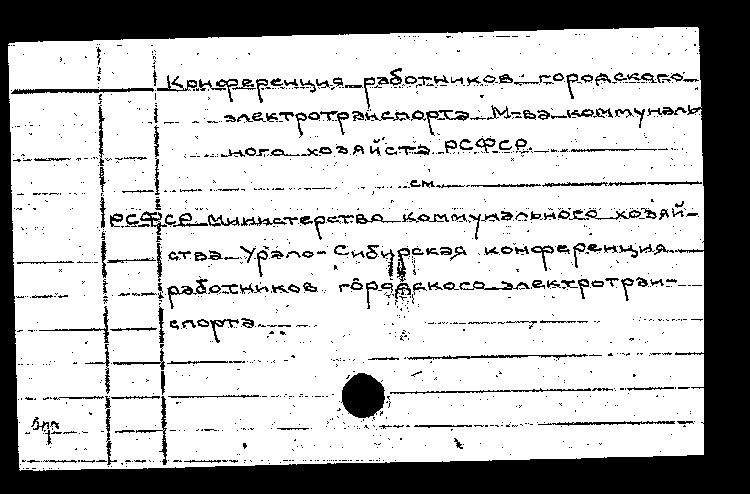 Конференция работников городского
электротранспорта М-ва коммуналь
ного хозяйства РСФСР
см.
РСФСР Министерство коммунального хозяй-
ства Урало-Сибирская конференция
работников городского электротран-
спорта